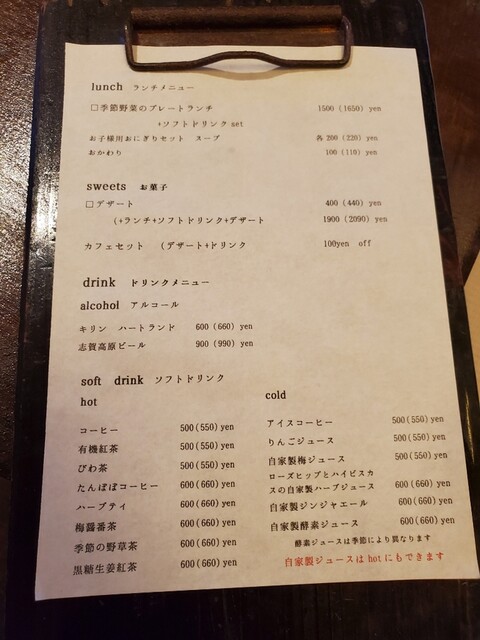 lunch ランチメニュー
□季節野菜のプレートランチ 1500 (1650) yen
+ソフトドリンク set
お子様用おにぎりセット スープ 各200 (220) yen
おかわり 100 (110) yen
sweets お菓子
□デザート 400 (440) yen
(+ランチ+ソフトドリンク+デザート 1900 (2090) yen
カフェセット (デザート+ドリンク 100yen off
drink ドリンクメニュー
alcohol アルコール
キリン ハートランド 600 (660) yen
志賀高原ビール 900 (990) yen
soft drink ソフトドリンク
hot
コーヒー 500(550)yen
有機紅茶 500(550)yen
びわ茶 500(550)yen
たんぽぽコーヒー 600(660)yen
ハーブティ 600(660)yen
梅醤番茶 600(660)yen
季節の野草茶 600(660)yen
黒糖生姜紅茶 600(660)yen
cold
アイスコーヒー 500(550)yen
りんごジュース 500(550)yen
自家製梅ジュース 500(550)yen
ローズヒップとハイビスカ
スの自家製ハーブジュース 600(660)yen
自家製ジンジャエール 600(660)yen
自家製酵素ジュース 600(660)yen
酵素ジュースは季節により異なります
自家製ジュースはhotにもできます